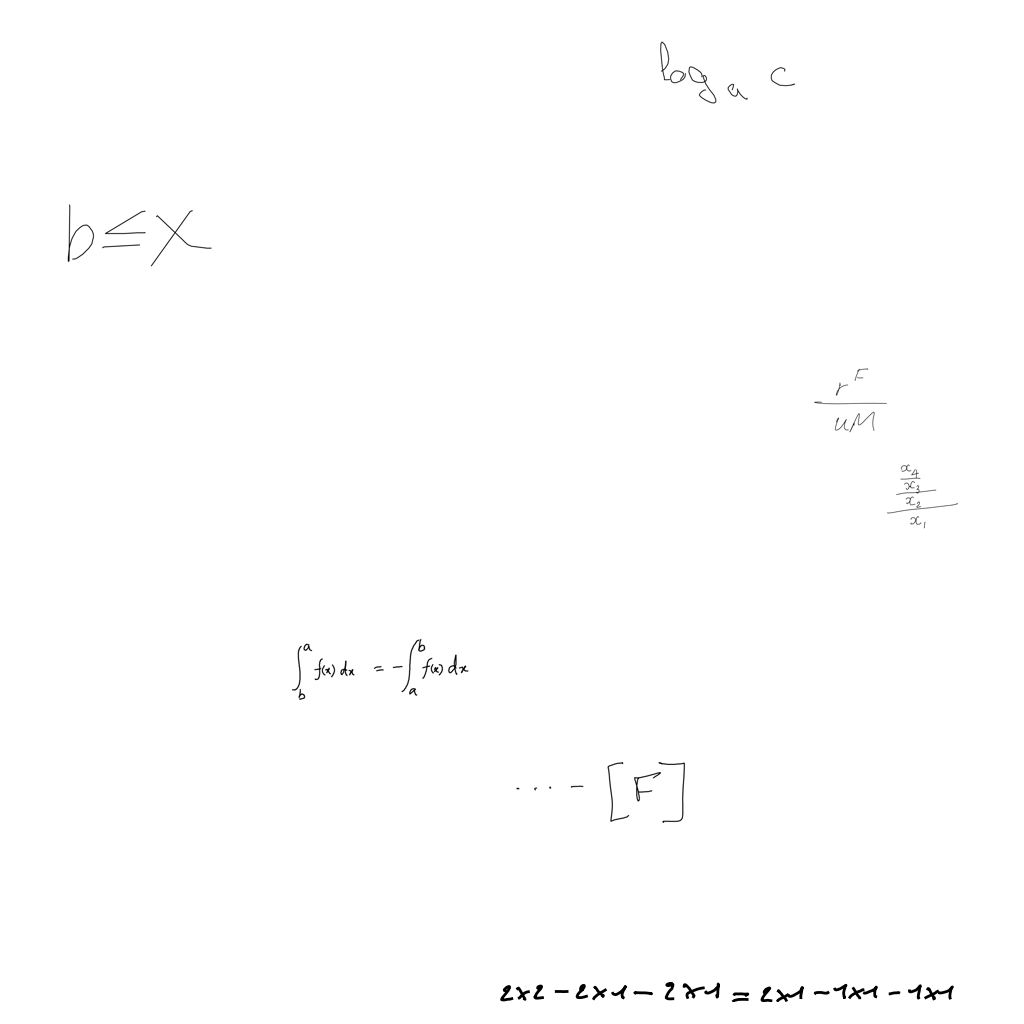 log_a c
b ≤ x
\frac{r^F}{uM}
\frac{\frac{\frac{x_4}{x_3}}{x_2}}{x_1}
\int_b^a f(x) dx = -\int_a^b f(x) dx
... - [F]
2×2 - 2×1 - 2×1 = 2×1 - 1×1 - 1×1